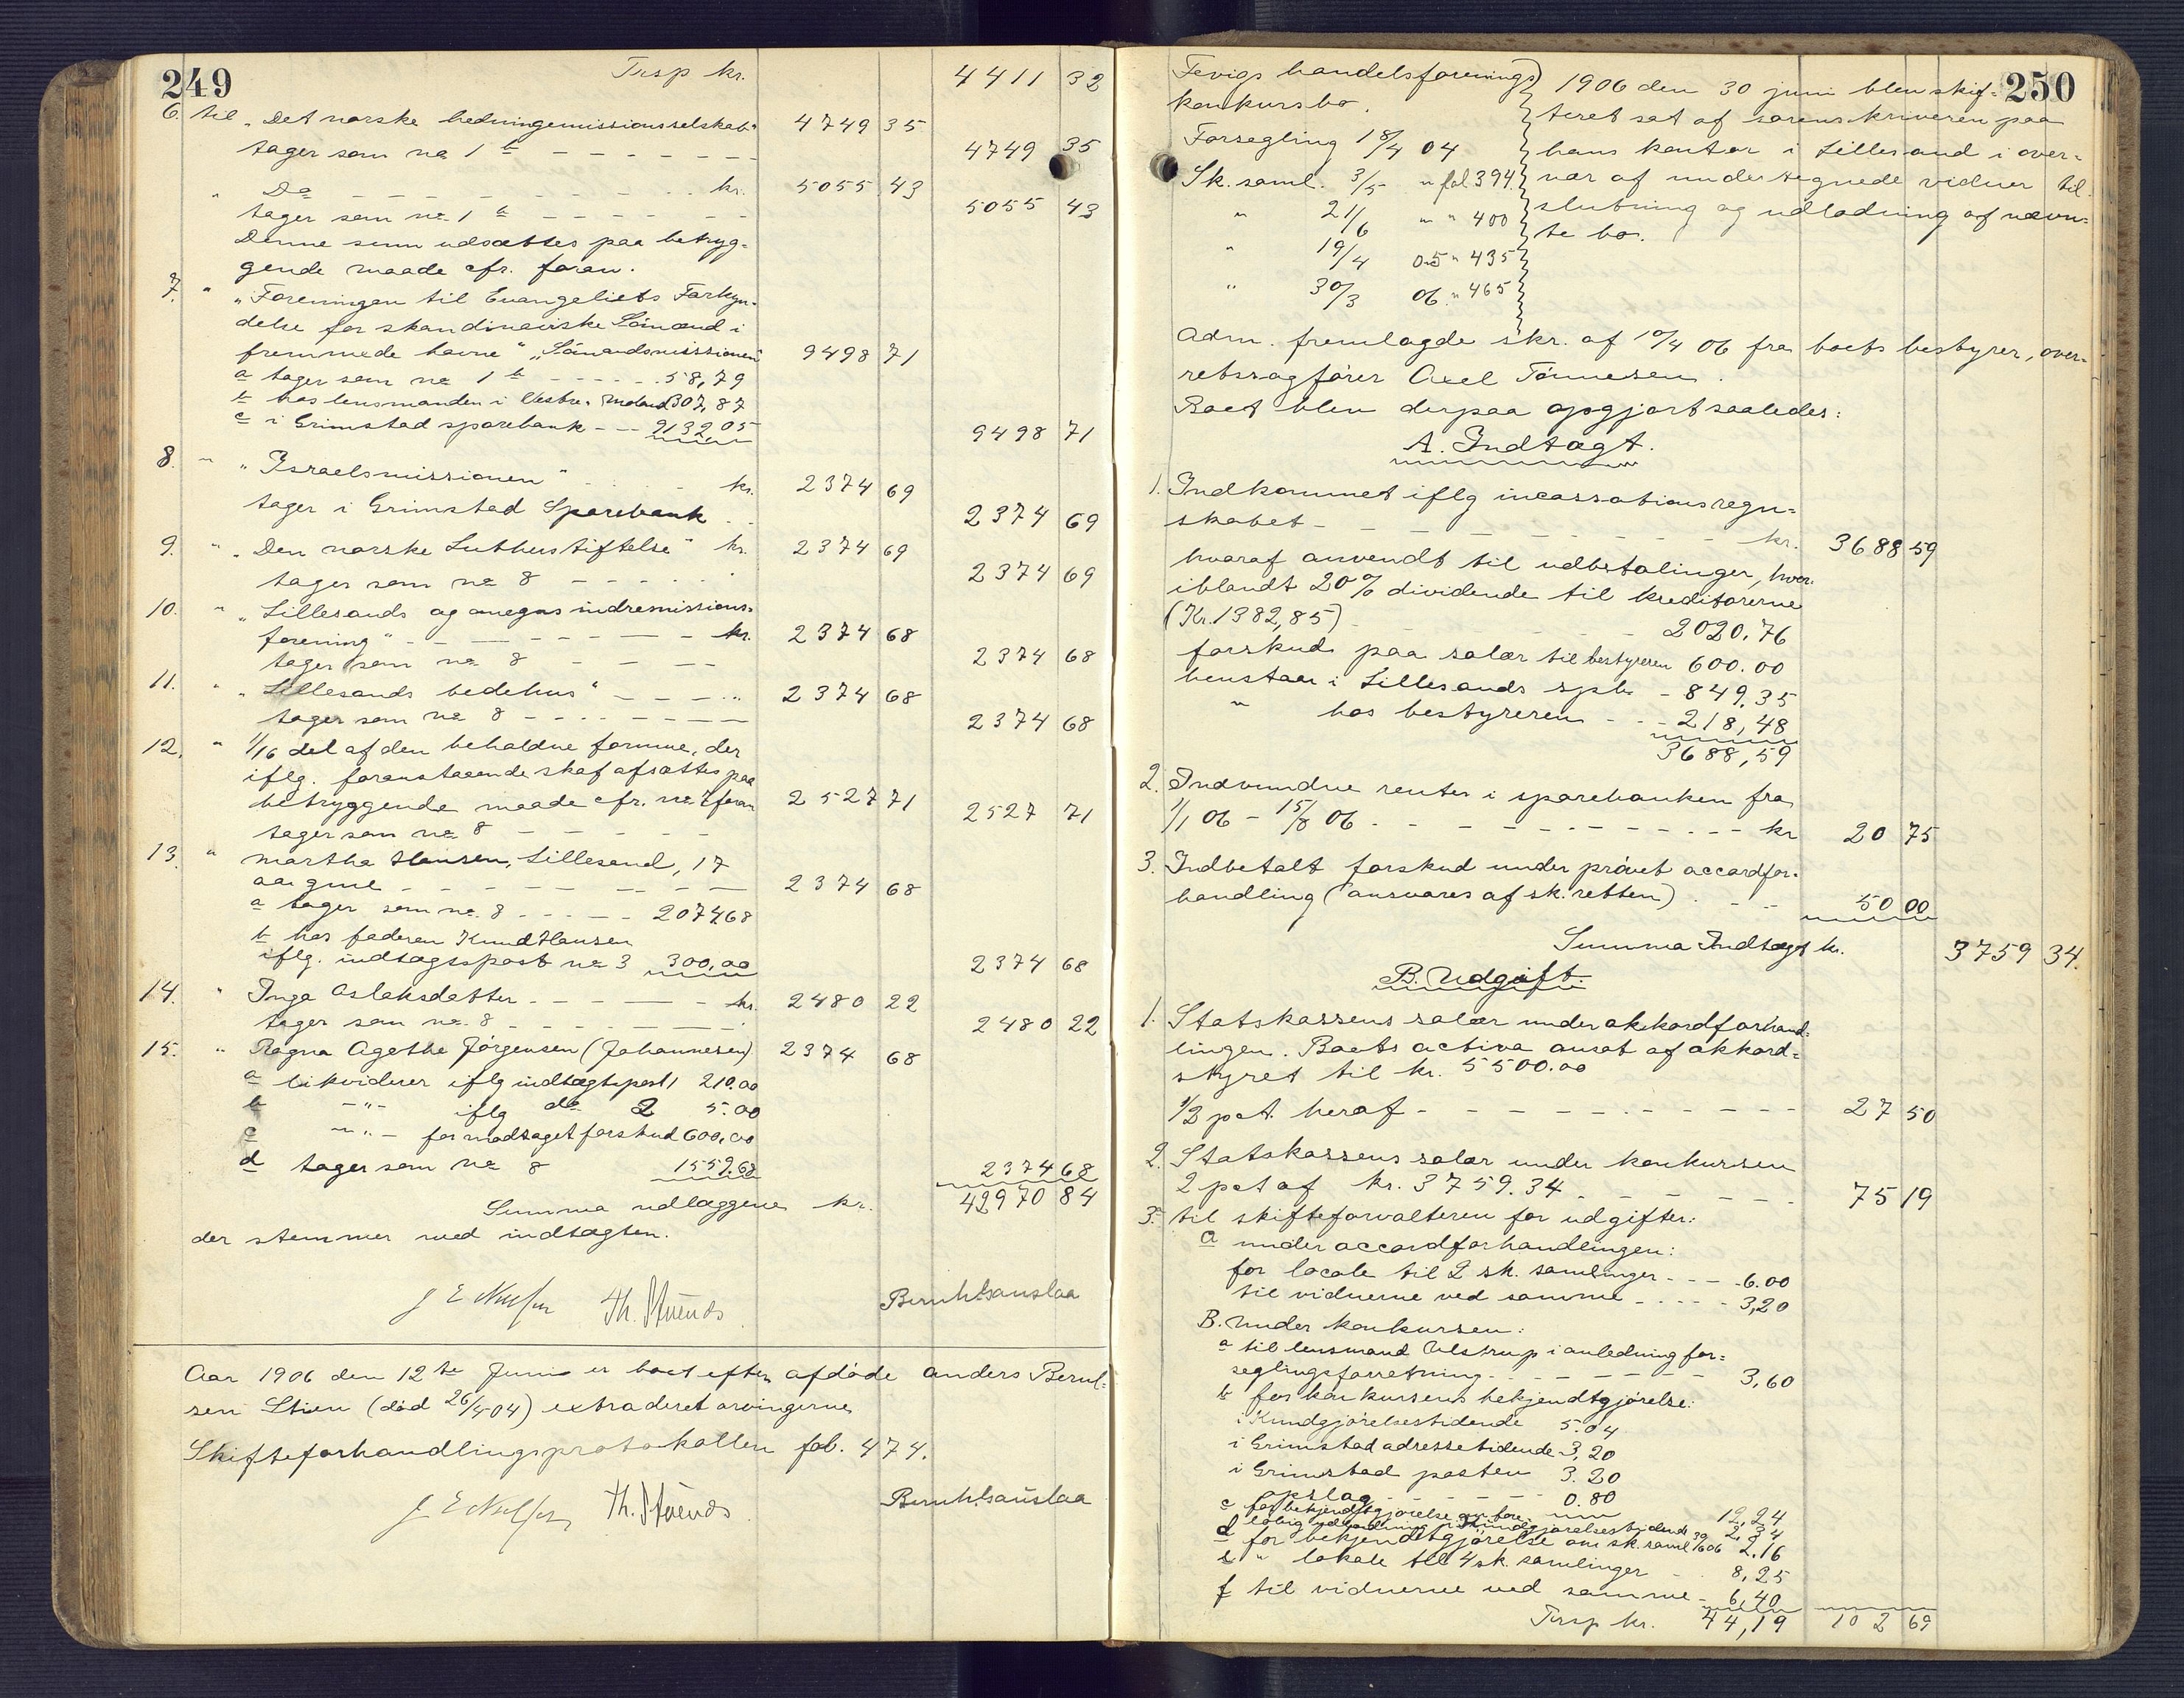 249
Trsp kr. 4411 32
6. til „Det norske hedningemissionsselskab“ 4749 35
tager som no 1 b 4749 35
" Do kr. 5055 43
tager som no 1 b 5055 43
Denne sum udsættes paa betryg-
gende maade cfr. foran.
7. " „Foreningen til Evangeliets Forkyn-
delse for skandinaviske Sömænd i
fremmede havne“ „Sömandsmissionen“ 9498 71
a tager som no 1 b 58,79
b hos lensmanden i Vestre Moland 307,87
c i Grimstad sparebank 9132 05
9498 71
8. " „Israelsmissionen“ kr. 2374 69
tager i Grimstad Sparebank 2374 69
9. " „Den norske Lutherstiftelse“ kr. 2374 69
tager som no 8 2374 69
10. " „Lillesands og omegns indremissions-
forening“ kr. 2374 68
tager som no 8 2374 68
11. " „Lillesands bedehus“ 2374 68
tager som no 8 2374 68
12. " 1/16 del af den beholdne formue, der
iflg. foranstaaende skal afsættes paa
betryggende maade cfr. no 2 foran 2527 71
tager som no 8 2527 71
13. " Martha Hansen, Lillesand, 17
aar gml 2374 68
a tager som no. 8 2074,68
b hos faderen Knud Hansen
iflg. indtægtspost no 3 300,00 2374 68
14. " Inga Aslaksdatter kr. 2480 22
tager som no. 8 2480 22
15. " Ragna Agethe Jörgensen (Johannesen) 2374 68
a likviderer iflg indtægtspost 1 210.00
b -"- iflg do 2 5.00
c -"- for modtaget forskud 600,00
d tager som no 8 1559.68 2374 68
Summa udlæggene kr. 42970 84
der stemmer med indtægten.
Th. Stuenes
Aar 1906 den 12te Juni er boet efter afdöde Anders Berul-
sen Stien (död 26/4-04) extraderet arvingerne
Skifteforhandlingsprotokollen fol. 474.
Th. Stuenes
250
Fevigs handelsforenings
konkursbo.
Forsegling 18/4 04
Sk. saml. 3/5 " fol 394.
" 21/6 " " 400
" 19/4 05 " 435
" 30/3 06 " 465
1906 den 30 juni blev skif-
teret sat af sorenskriveren paa
hans kontor i Lillesand i over-
vær af undertegnede vidner til
slutning og udlodning af nævn-
te bo.
Adm. fremlagde skr. af 10/4 06 fra boets bestyrer, over-
retssagförer Axel Tönnesen.
Boet blev derpaa opgjort saaledes:
A. Indtægt.
1. Indkommet iflg incassationsregn-
skabet kr. 3688 59
hvoraf anvendt til udbetalinger, hvor-
iblandt 20% dividende til kreditorerne
(Kr. 1382,85) 2020.76
forskud paa salær til bestyreren 600.00
henstaar i Lillesands spb. 849.35
" hos bestyreren 218,48
3688,59
2. Indvundne renter i sparebanken fra
1/1 06 - 15/8 06 kr 20 75
3. Indbetalt forskud under prövet accordfor-
handling (ansvares af sk. retten) 50 00
Summa Indtægt kr. 3759 34.
B. Udgift.
1. Statskassens salær under akkordforhand-
lingen. Boets activa ansat af akkord-
styret til kr. 5500.00
1/2 pct. heraf 27 50
2. Statskassens salær under konkursen
2 pct af kr. 3759.34 75 19
3. til skifteforvalteren for udgifter:
a under accordforhandlingen:
for locale til 2 sk. samlinger 6.00
til vidnerne ved samme 3,20
B. under konkursen:
a til lensmand Ulstrup i anledning for-
seglingsforretning 3,60
b for konkursens bekjendtgjörelse:
i Kundgjörelsestidende 5.04
i Grimstad adressetidende 3,20
i Grimstad posten 3.20
opslag 0.80
12,24
c for bekjendtgjörelse om fore-
löbig udlodning i Kundgjörelsestidende 2,34
d for bekjendtgjörelse om sk. saml 30/6 06 2.16
e " lokale til 4 sk. samlinger 8,25
f til vidnerne ved samme 6,40
Trsp kr. 44,19 102 69